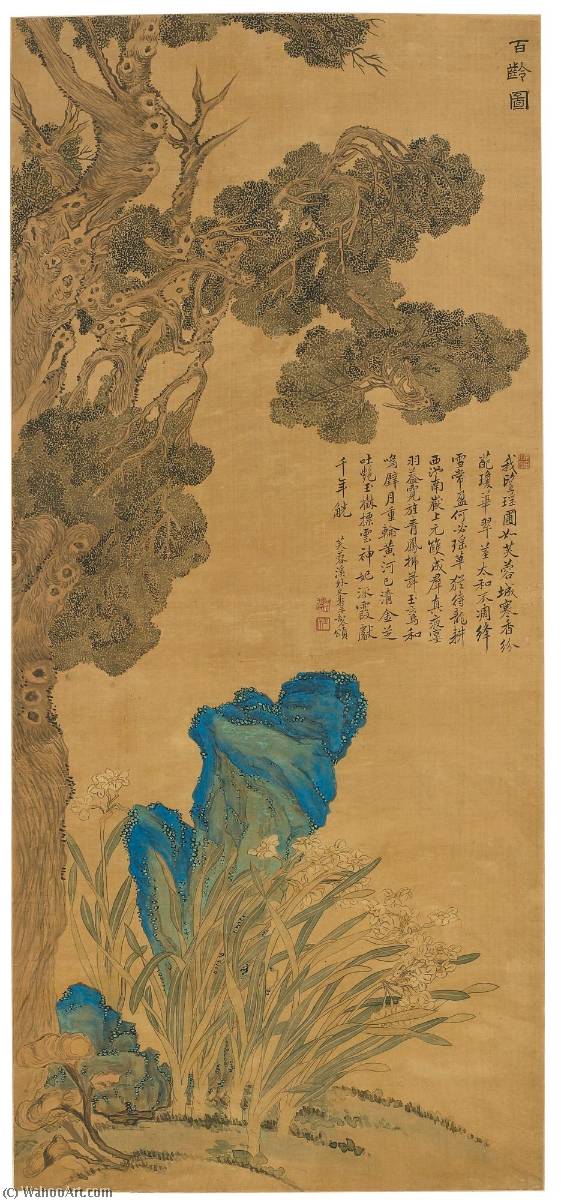 百齡圖
我瑤圃如芙蓉城寒香紛
葩瓊華翠莖太和不凋絳
雪常盈何必瑤草待龍耕
西池南嶽上元雙成群真夜宴
羽蓋霓旌青鳳舞玉鸞和
鳴璧月重輪黃河已清金芝
吐艷玉樹摽雲神妃泳霞獻
千年觥 芙蓉溪外史頌
(C) WahooArt.com